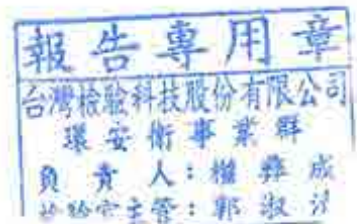 報告專用章
台灣檢驗科技股份有限公司
環安衛事業群
負責人：權彝成
檢驗室主管：郭淑